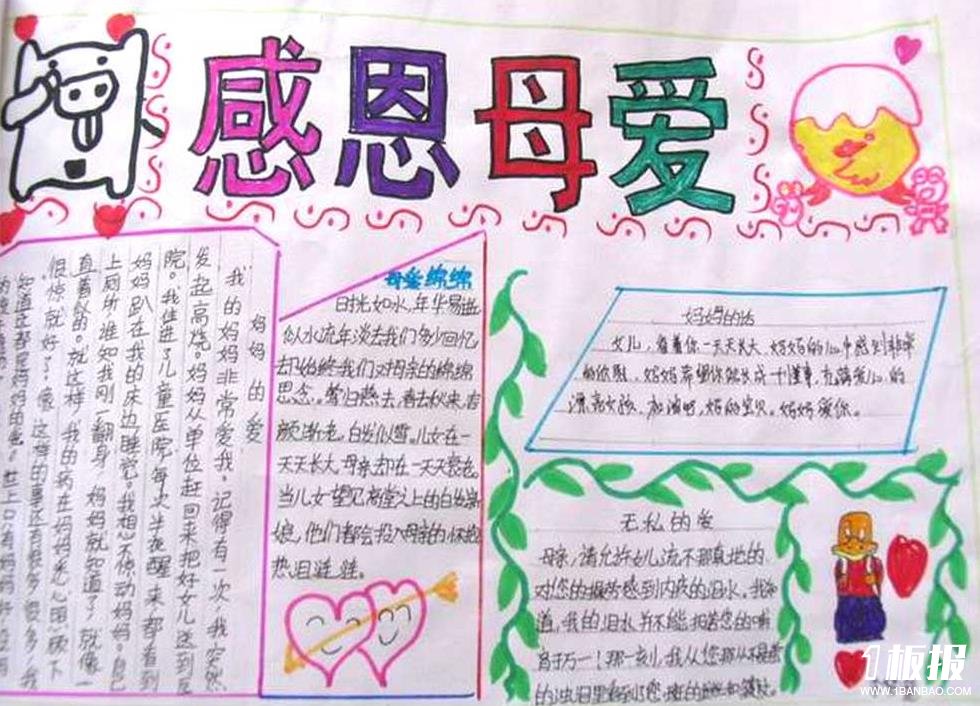 感恩母爱
妈妈的爱
我的妈妈非常爱我。记得有一次,我突然
发起高烧。妈妈从单位赶回来把好女儿送到医
院。我住进了儿童医院,每次半夜醒来都看到
妈妈趴在我的床边睡觉,我想不惊动妈妈。自己
上厕所,谁知我刚一翻身,妈妈就知道了,就像一
直看着似的。就这样,我的病在妈妈悉心照顾下
很快就好了。像这样的事还有很多很多,我
知道这都是妈妈的爱。世上只有妈妈好
母爱绵绵
日光如水,年华易逝
似水流年淡去我们多少回忆
却始终我们对母亲的绵绵
思念。莺归燕去,春去秋来,容
颜渐老。白发似雪。儿女在一
天天长大,母亲却在一天天衰老
当儿女望见高堂之上的白发亲
娘,他们都会投入母亲的怀抱
热泪涟涟。
妈妈的话
女儿,看着你一天天长大,妈妈的心中感到非常
的欣慰,妈妈希望你能长成一个懂事,充满爱心的
漂亮女孩,加油吧,妈的宝贝。妈妈爱你。
无私的爱
母亲,请允许女儿流不那真地的
对您的操劳感到内疚的泪水,我知
道,我的泪水并不能报答您的哺
育于万一!那一刻,我从您那从不疲惫
的
1板报
WWW.1BANBAO.COM